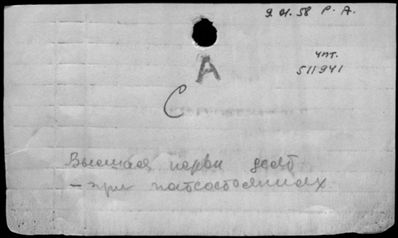 9.01.58 Р. А.
чт.
511941
А
С
Высшая нервн деят
– при патсостояниях